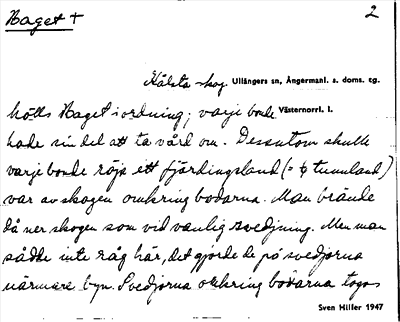 Haget + 2
Hålsta skog Ullångers sn, Ångermanl. s. doms. tg.
hölls Haget i ordning; varje bonde Västernorrl. l.
hade sin del att ta vård om. Dessutom skulle
varje bonde röja ett fjärdingsland (= ¼ tunnland)
var av skogen omkring bodarna. Man brände
då ner skogen som vid vanlig svedjning. Men man
sådde inte råg här, det gjorde de på svedjorna
närmare byn. Svedjorna omkring bodarna togs
Sven Hiller 1947